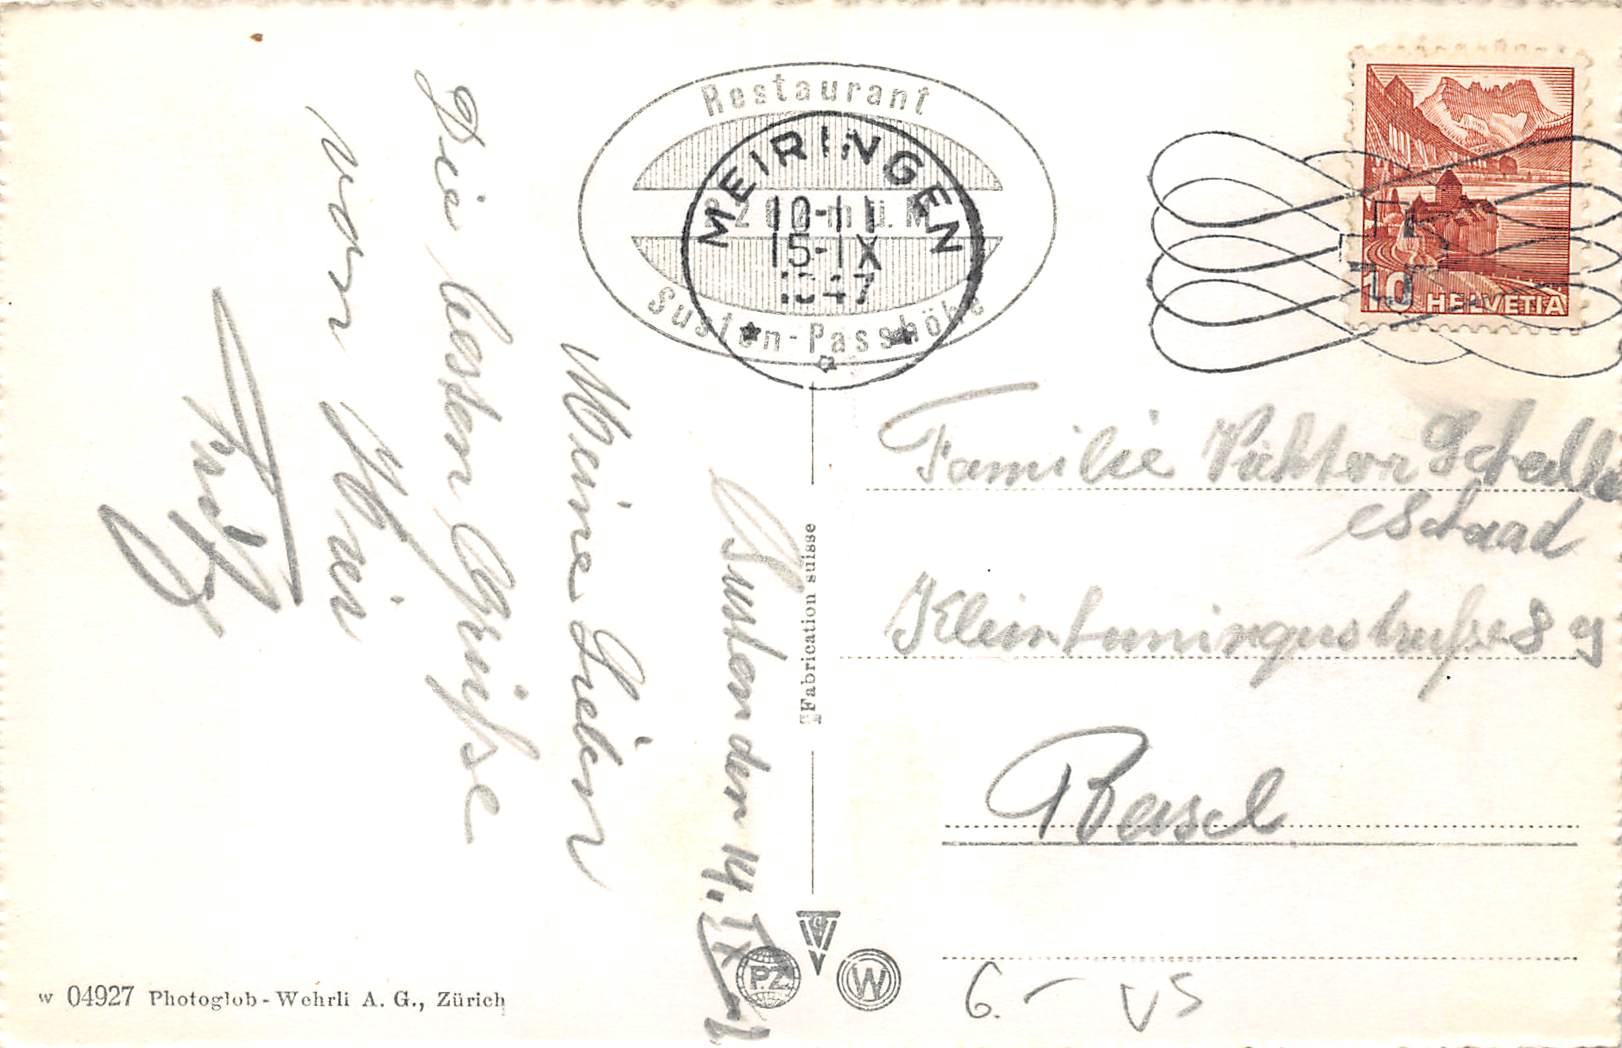 Susten den 14. IX
Meine Lieben
Die besten Grüsse
von
Restaurant
2260 m ü. M
Susten-Passhöhe
MEIRINGEN
10-11
15-IX
1947
10 HELVETIA
Familie Viktor
Basel
6.- VS
Fabrication suisse
PZ
W
W 04927 Photoglob-Wehrli A. G., Zürich